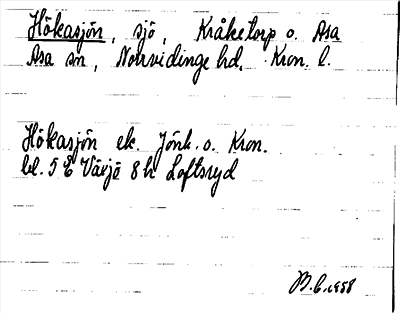 Hökasjön, sjö, Kråketorp o. Asa
Asa sn, Norrvidinge hd, Kron. l.
Hökasjön ek. Jönk. o. Kron.
bl. 5 E Växjö 8 h Loftsryd
B.C. 1958